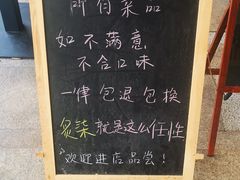 所有菜品
如不满意
不合口味
一律包退包换
炙柒就是这么任性
欢迎进店品尝！